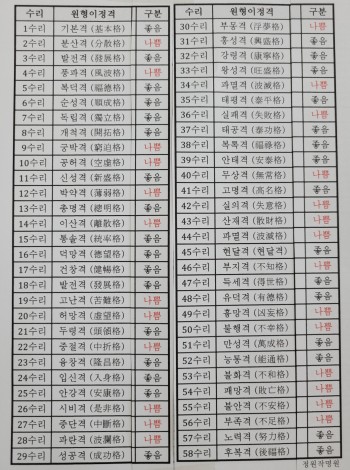 수리 원형이정격 구분
1수리 기본격(基本格) 좋음
2수리 분산격(分散格) 나쁨
3수리 발전격(發展格) 좋음
4수리 풍파격(風波格) 나쁨
5수리 복덕격(福德格) 좋음
6수리 순성격(順成格) 좋음
7수리 독립격(獨立格) 좋음
8수리 개척격(開拓格) 좋음
9수리 궁박격(窮迫格) 나쁨
10수리 공허격(空虛格) 나쁨
11수리 신성격(新盛格) 좋음
12수리 박약격(薄弱格) 나쁨
13수리 총명격(總明格) 좋음
14수리 이산격(離散格) 나쁨
15수리 통솔격(統率格) 좋음
16수리 덕망격(德望格) 좋음
17수리 건창격(健暢格) 좋음
18수리 발전격(發展格) 좋음
19수리 고난격(苦難格) 나쁨
20수리 허망격(虛望格) 나쁨
21수리 두령격(頭領格) 좋음
22수리 중절격(中折格) 나쁨
23수리 융창격(隆昌格) 좋음
24수리 입신격(入身格) 좋음
25수리 안강격(安康格) 좋음
26수리 시비격(是非格) 나쁨
27수리 중단격(中斷格) 나쁨
28수리 파란격(波瀾格) 나쁨
29수리 성공격(成功格) 좋음
30수리 부몽격(浮夢格) 나쁨
31수리 흥성격(興盛格) 좋음
32수리 강령격(康寧格) 좋음
33수리 왕성격(旺盛格) 좋음
34수리 파멸격(波滅格) 나쁨
35수리 태평격(泰平格) 좋음
36수리 실패격(失敗格) 나쁨
37수리 태공격(泰功格) 좋음
38수리 복록격(福祿格) 좋음
39수리 안태격(安泰格) 좋음
40수리 무상격(無常格) 나쁨
41수리 고명격(高名格) 좋음
42수리 실의격(失意格) 나쁨
43수리 산재격(散財格) 나쁨
44수리 파멸격(波滅格) 나쁨
45수리 현달격(현달격) 좋음
46수리 부지격(不知格) 나쁨
47수리 득세격(得世格) 좋음
48수리 유덕격(有德格) 좋음
49수리 흉망격(凶妄格) 나쁨
50수리 불행격(不幸格) 나쁨
51수리 만성격(萬成格) 좋음
52수리 능통격(能通格) 좋음
53수리 불화격(不和格) 나쁨
54수리 패망격(敗亡格) 나쁨
55수리 불안격(不安格) 나쁨
56수리 부족격(不足格) 나쁨
57수리 노력격(努力格) 좋음
58수리 후복격(後福格) 좋음
정원작명원